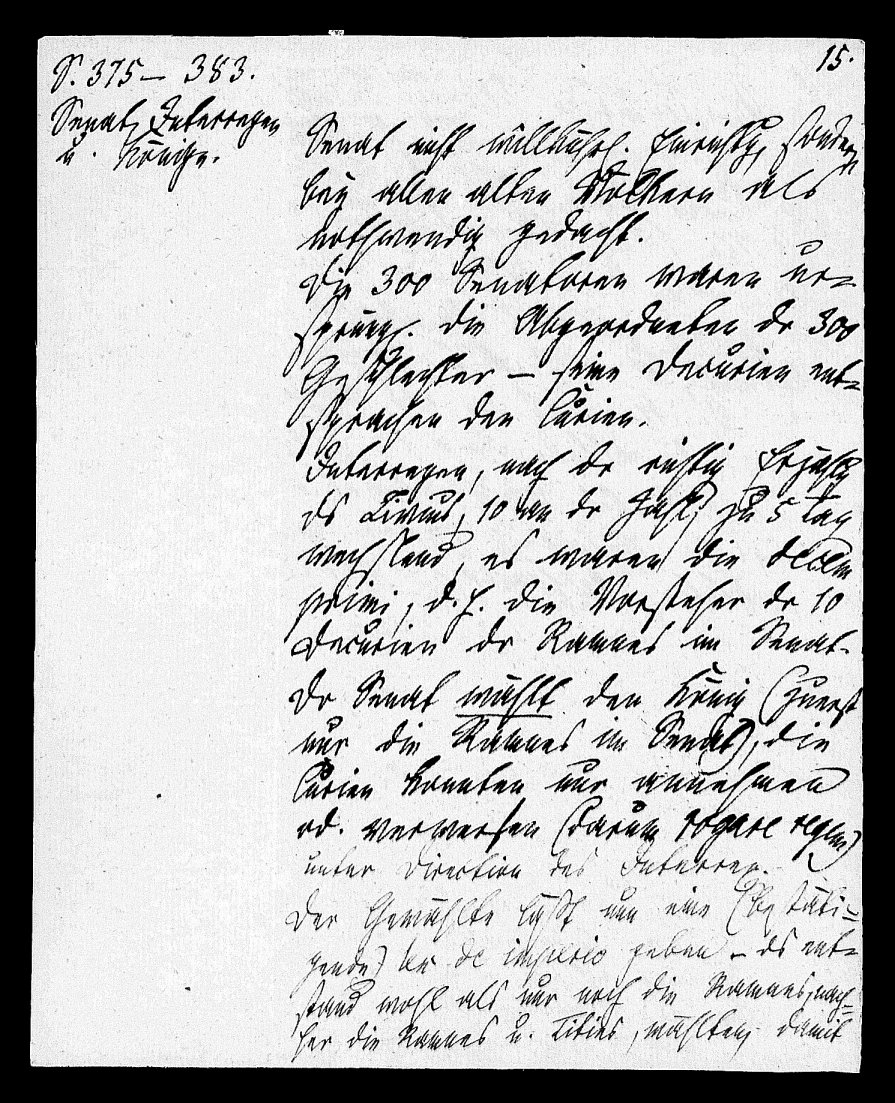 15.
S. 375 – 383.
Senat, Interregen
u. Könige.
Senat nicht willkührl. Einrichtg, sondern
bey allen alten Völkern als
nothwendig gedacht.
Die 300 Senatoren waren ur-
sprüngl. die Abgeordneten dr 300
Geschlechter – seine Decurien ent-
sprachen den Curien.
Interregen, nach dr richtig Erzählg
ds Livius, 10 an dr Zahl, zu 5 Tag
wechselnd, es waren die decem
primi, d. h. die Vorsteher dr 10
Decurien dr Ramnes im Senat.
Dr Senat wählt den König (zuerst
nur die Ramnes im Senat), die
Curien konnten nur annehmen
od. verwerfen (darum rogare regem)
unter Direction des Interrex.
Der Gewählte läßt nun eine (bestäti-
gende) lex de imperio geben – ds ent-
stand wohl als nur noch die Ramnes, nach-
her die Ramnes u. Tities, wählten, damit